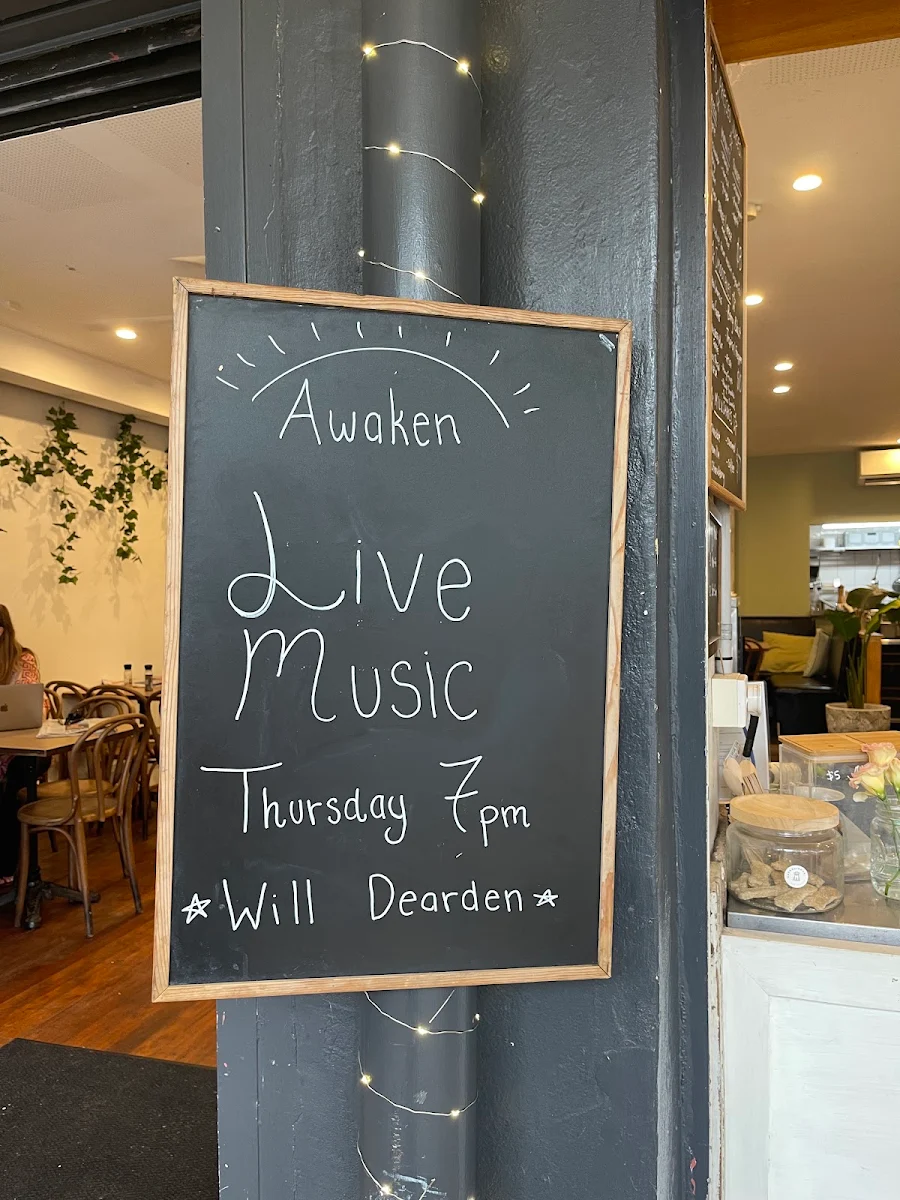 Awaken
Live
Music
Thursday 7pm
Will Dearden
$5